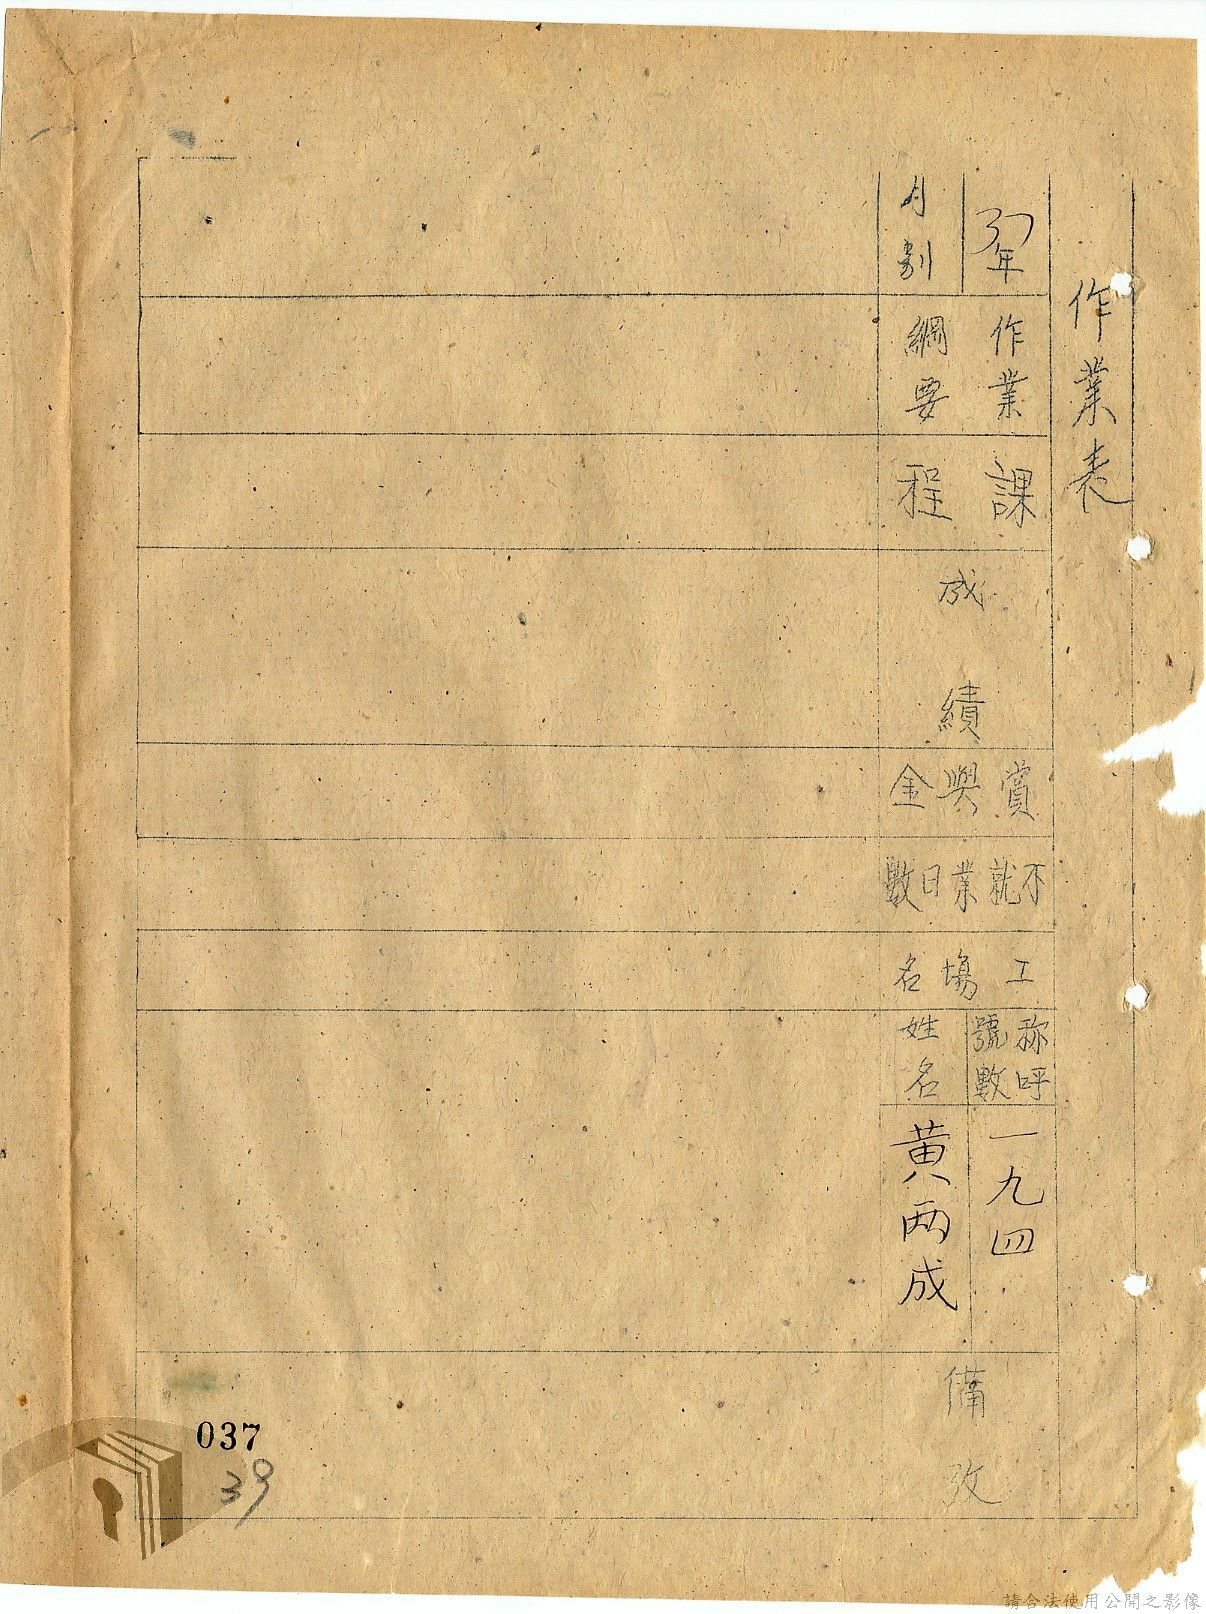 作業表
37年
月別
作業
綱要
課程
成績
賞與金
不就業日數
工場名
称呼
號數
姓名
一九四
黄两成
備攷
037
39
請合法使用公開之影像